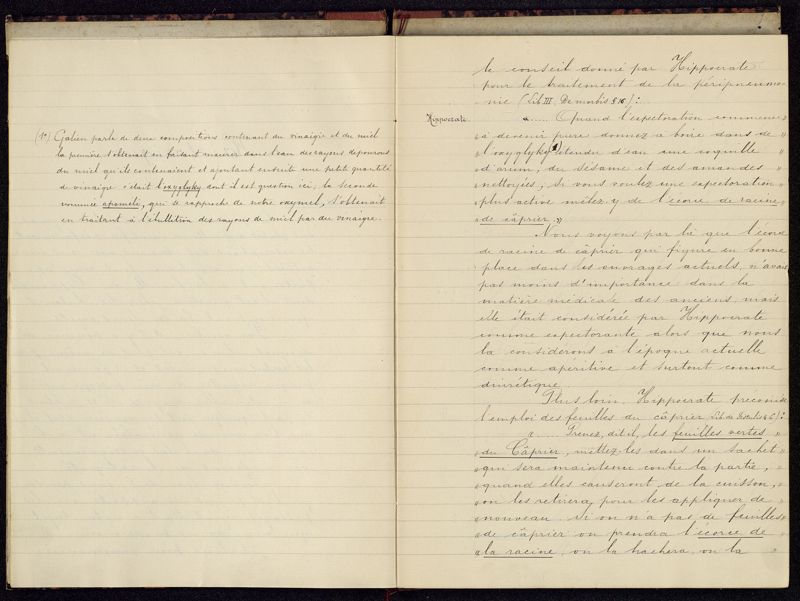 (1) Galien parle de deux compositions contenant du vinaigre et du miel
la première s'obtenait en faisant macérer dans l'eau des rayons dépourvus
du miel qu'ils contenaient et ajoutant ensuite une petite quantité
de vinaigre c'était l'oxyglyky dont il est question ici; la seconde
nommée apomeli, qui se rapproche de notre oxymel, s'obtenait
en traitant à l'ébullition des rayons de miel par du vinaigre.
le conseil donné par Hippocrate
pour le traitement de la péripneumo-
nie (Lib. III. De morbis § 16):
Hippocrate
« ..... Quand l'expectoration commence
« à devenir pure donnez à boire dans de
« l'oxyglyky(1) étendu d'eau une coquille
« d'arum, du sésame et des amandes
« nettoyées, si vous voulez une expectoration
« plus active mêlez y de l'écorce de racine
« de câprier. »
Nous voyons par là que l'écorce
de racine de câprier qui figure en bonne
place dans les ouvrages actuels, n'avait
pas moins d'importance dans la
matière médicale des anciens, mais
elle était considérée par Hippocrate
comme expectorante alors que nous
la considérons à l'époque actuelle
comme apéritive et surtout comme
diurétique.
Plus loin, Hippocrate préconise
l'emploi des feuilles du câprier :
« .... Prenez, dit il, les feuilles vertes »
« du Câprier, mettez-les dans un sachet
« qui sera maintenu contre la partie, »
« quand elles causeront de la cuisson, »
« on les retirera, pour les appliquer de »
« nouveau. Si on n'a pas de feuilles »
« de câprier on prendra l'écorce de »
« la racine, on la hachera, on la »